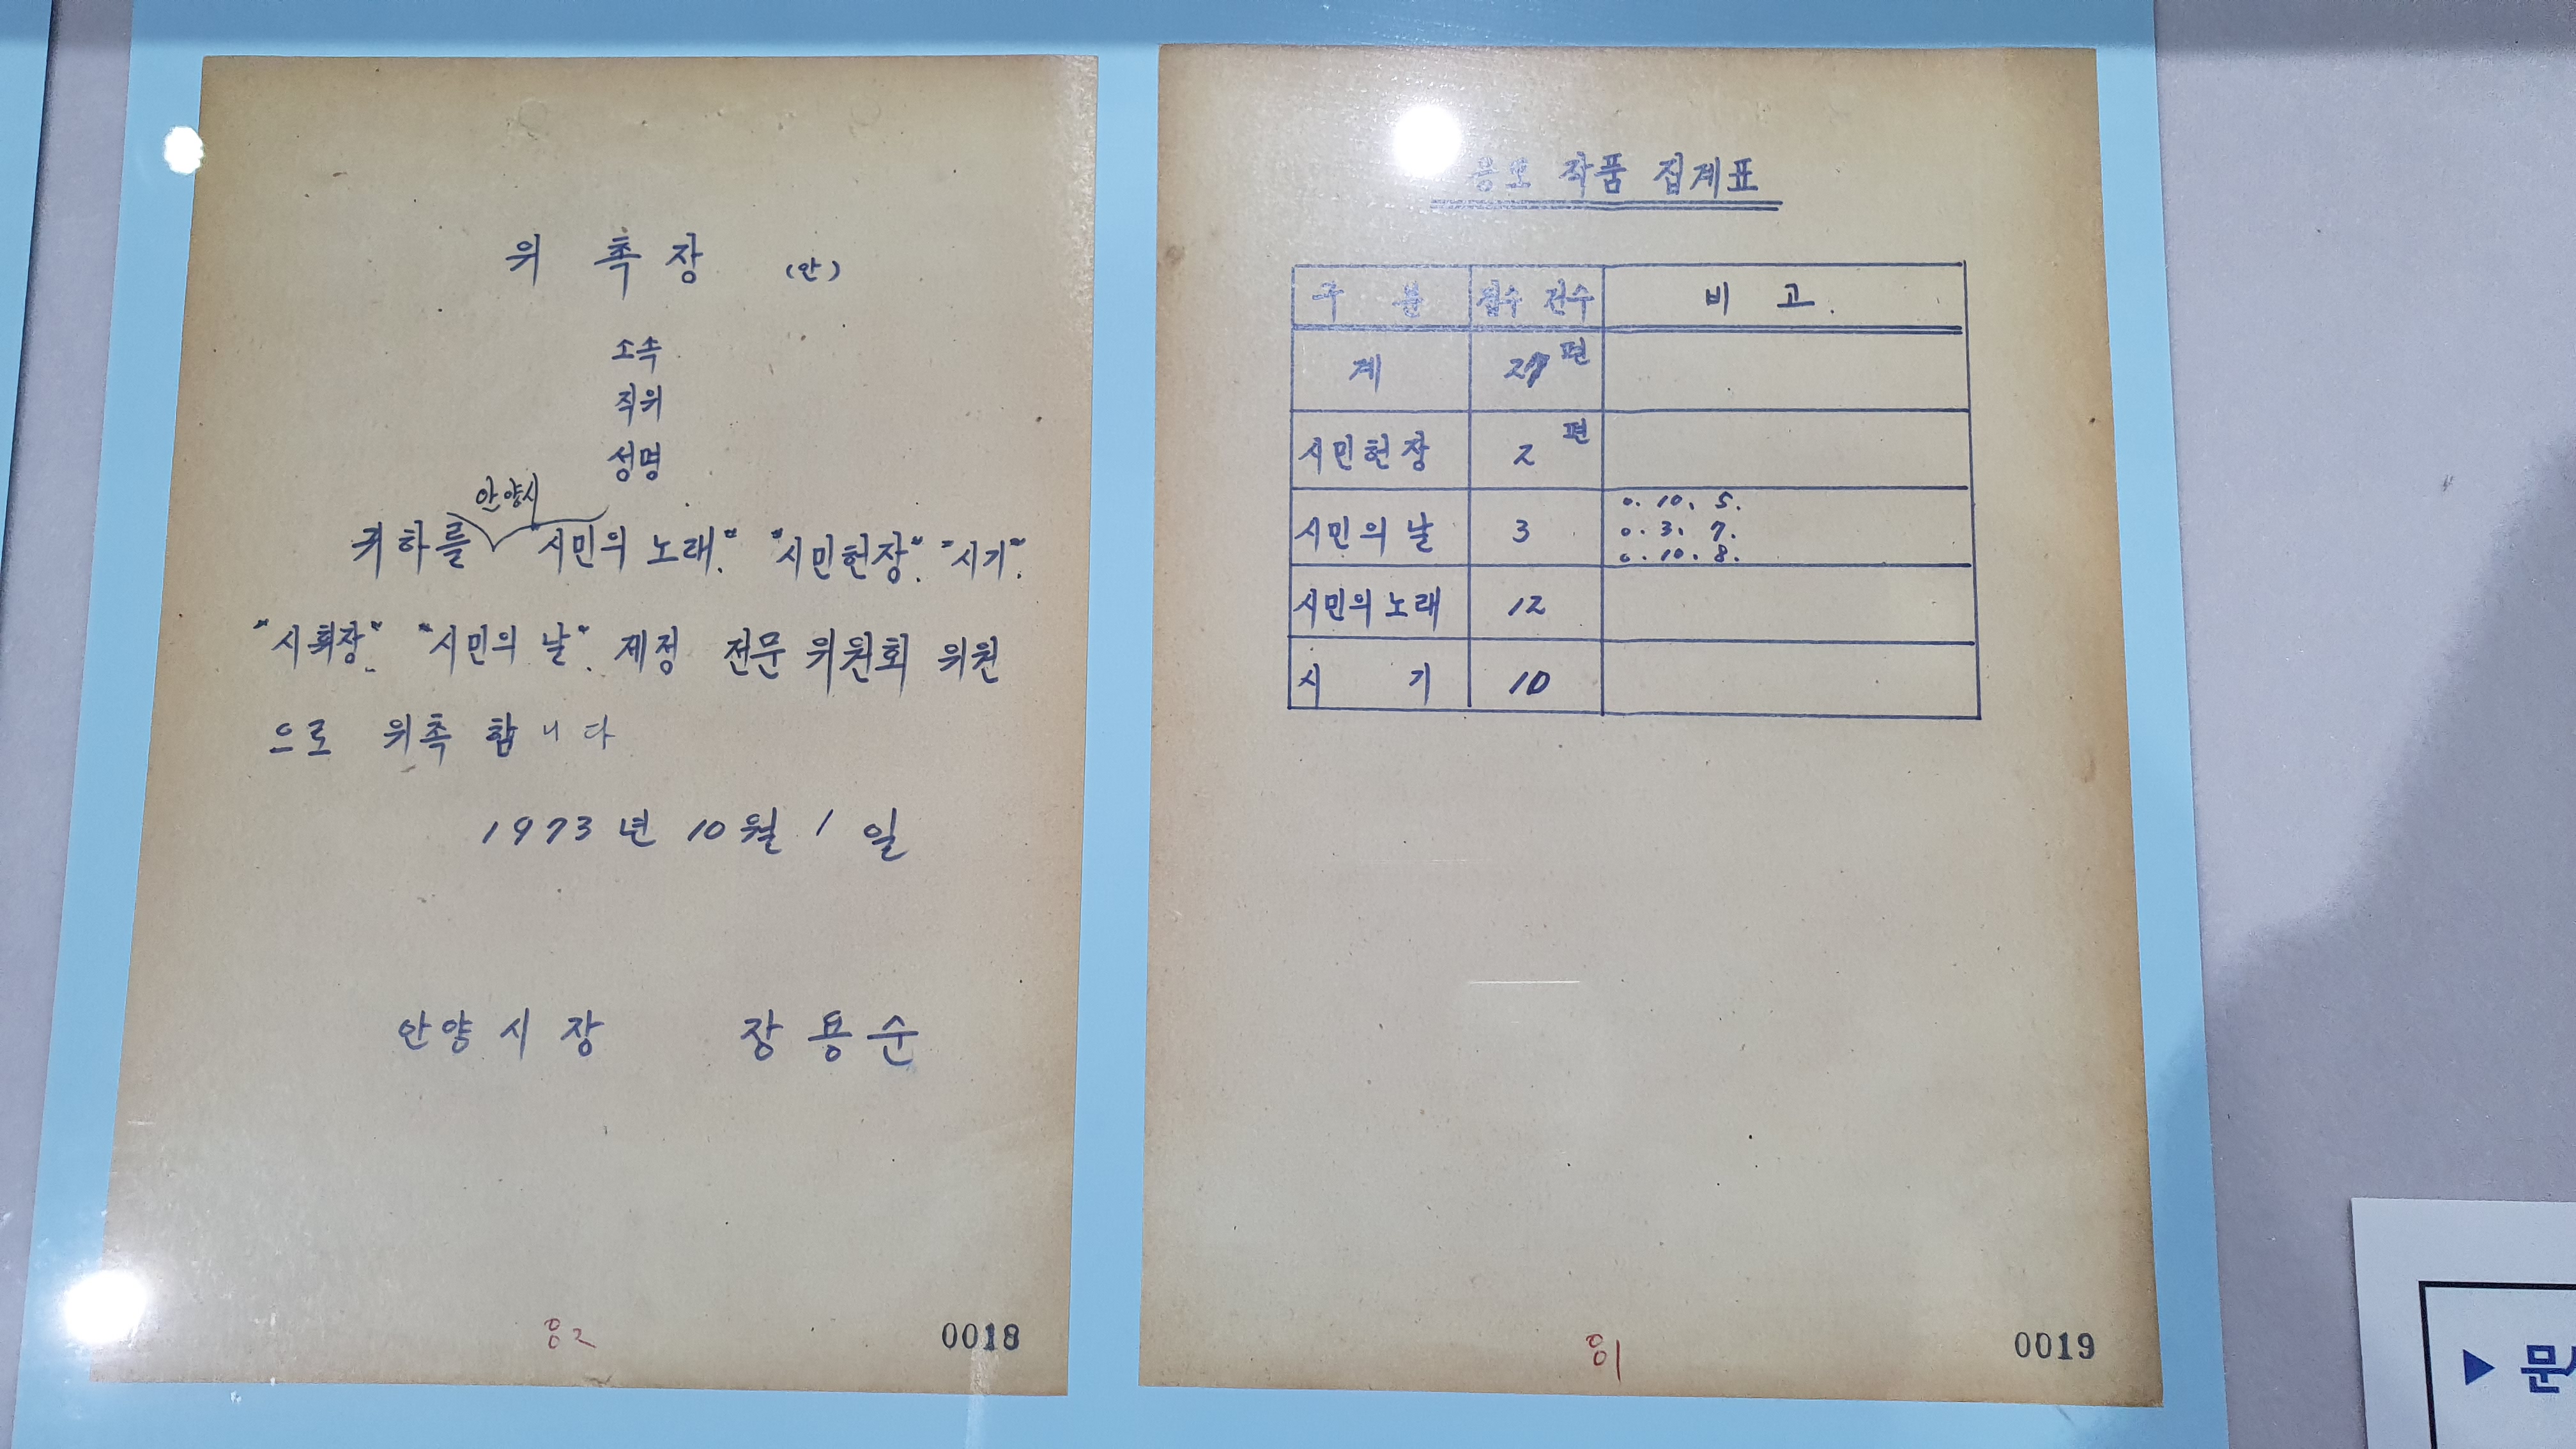 위 촉 장 (안)
소속
직위
성명
안양시
귀하를 "시민의 노래". "시민헌장". "시기".
"시휘장". "시민의 날". 제정 전문 위원회 위원
으로 위촉 합니다
1973년 10월 1일
안양시장 장용순
0018
응모 작품 집계표
구 분 접수 건수 비 고.
계 편
시민헌장 2 편
시민의 날 3
0. 10. 5.
0. 3. 7.
0. 10. 8.
시민의 노래 12
시 기 10
0019
▶ 문